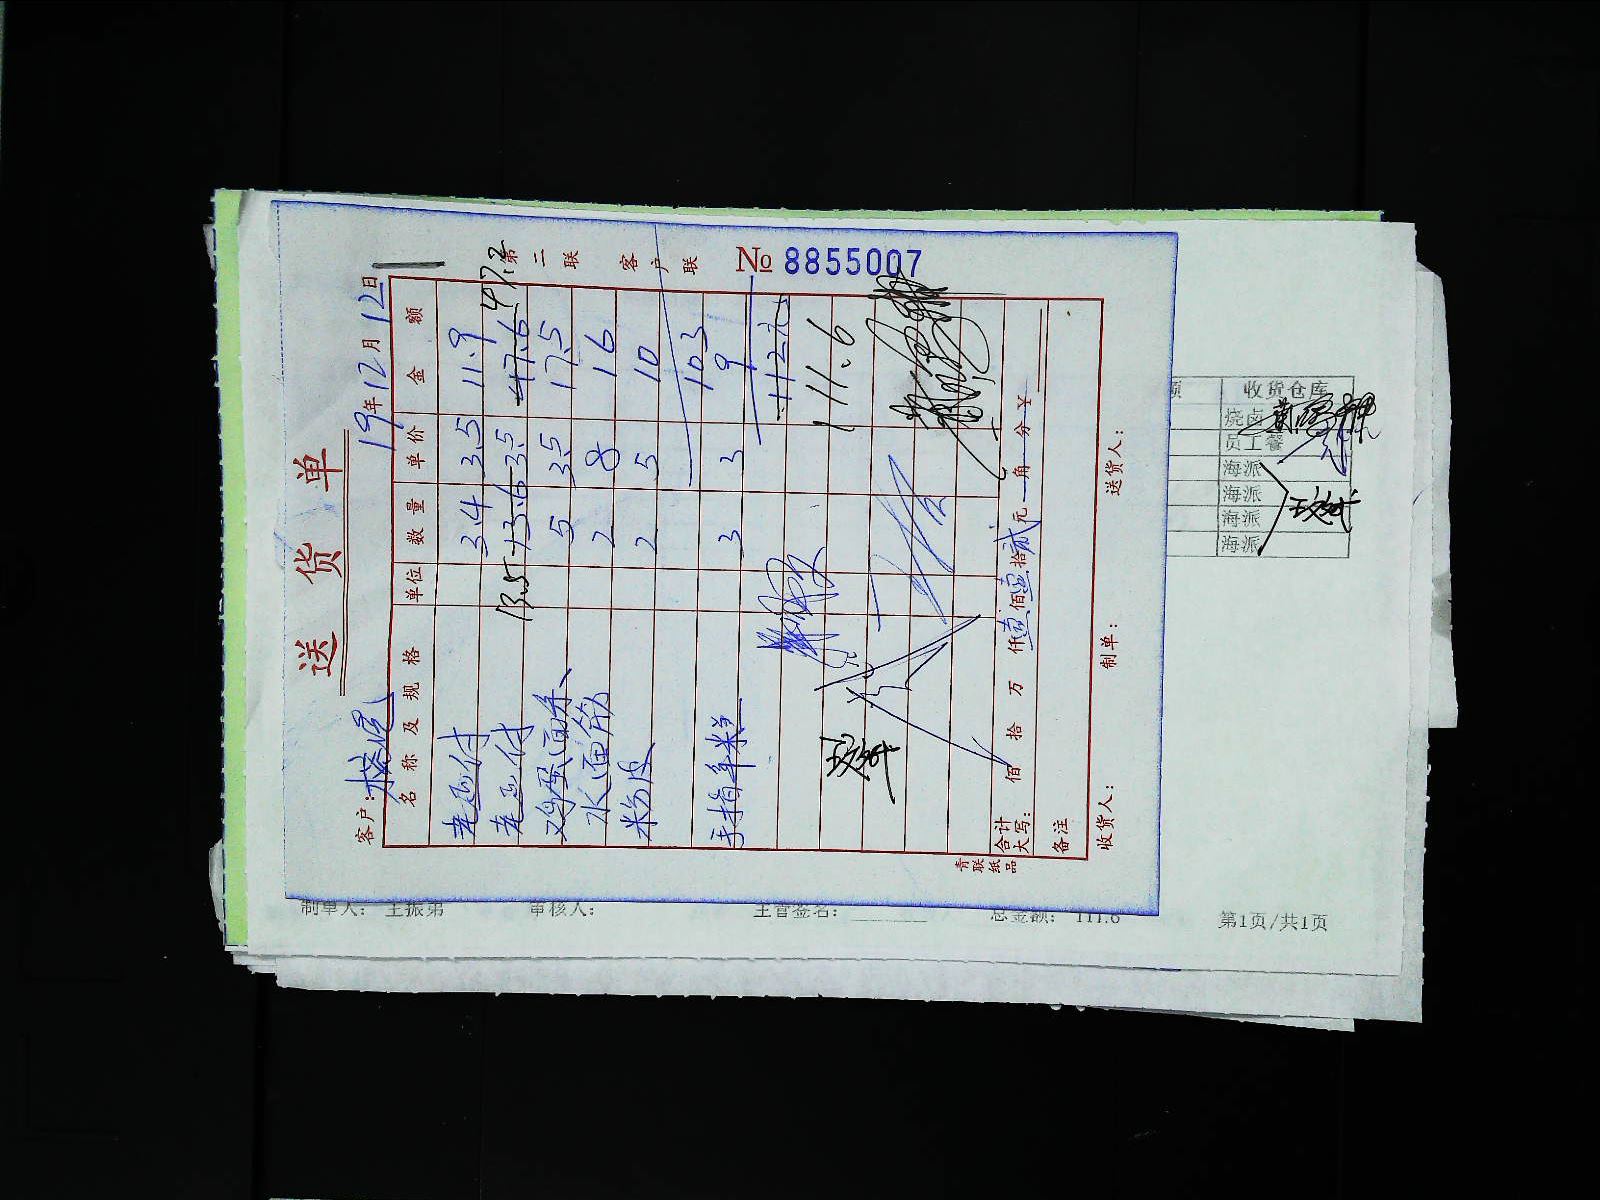 送货单
第二联 客户联
№ 8855007
客户:
19年12月12日
名称及规格 单位 数量 单价 金额
老豆付 3.4 3.5 11.9
老豆付 13.5 13.6 3.5 47.6 47.2
鸡蛋面条 5 3.5 17.5
水面筋 2 8 16
粉皮 2 5 10
103
手指年糕 3 3 9
112元
111.6
合计大写: 佰 拾 万 仟 壹佰 壹拾 贰元 角 分 ¥
备注
收货人: 制单: 送货人:
青联纸品
额 收货仓库
烧卤
员工餐
海派
海派
海派
海派
制单人: 王振弟 审核人: 主管签名: 总金额: 111.6
第1页/共1页